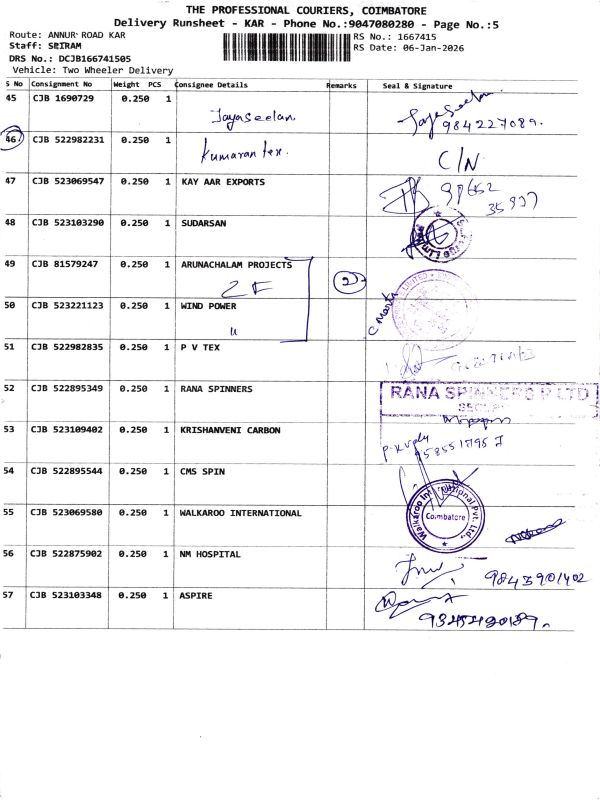 THE PROFESSIONAL COURIERS, COIMBATORE
Delivery Runsheet - KAR - Phone No.:9047080280 - Page No.:5
Route: ANNUR ROAD KAR
Staff: SRIRAM
DRS No.: DCJB166741505
Vehicle: Two Wheeler Delivery
RS No.: 1667415
RS Date: 06-Jan-2026
S No Consignment No Weight PCS Consignee Details Remarks Seal & Signature
45 CJB 1690729 0.250 1 Jayaseelan. Jayaseelan
984227089.
46 CJB 522982231 0.250 1 Kumaran tex. C/N
47 CJB 523069547 0.250 1 KAY AAR EXPORTS
48 CJB 523103290 0.250 1 SUDARSAN
49 CJB 81579247 0.250 1 ARUNACHALAM PROJECTS
2F 2
50 CJB 523221123 0.250 1 WIND POWER
"
51 CJB 522982835 0.250 1 P V TEX
52 CJB 522895349 0.250 1 RANA SPINNERS RANA SPINNERS P LTD
53 CJB 523109402 0.250 1 KRISHANVENI CARBON
54 CJB 522895544 0.250 1 CMS SPIN
55 CJB 523069580 0.250 1 WALKAROO INTERNATIONAL Walkaroo International Pvt. Ltd.,
Coimbatore
56 CJB 522875902 0.250 1 NM HOSPITAL 9843901402
57 CJB 523103348 0.250 1 ASPIRE